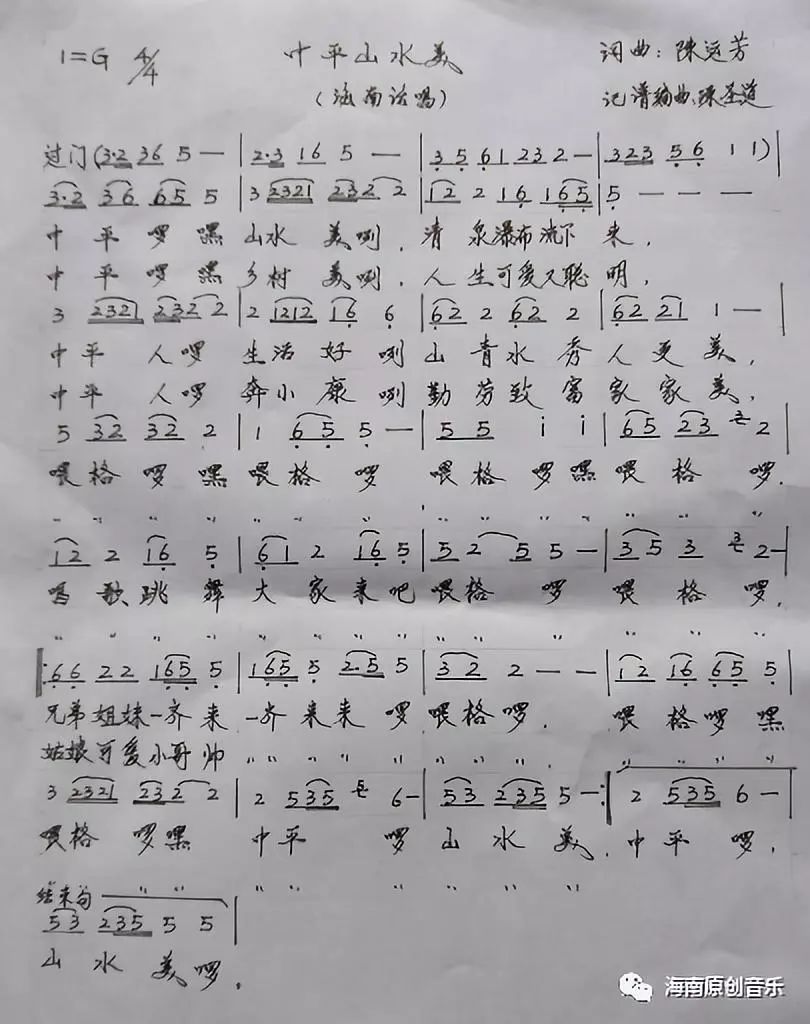 1=G 4/4 中平山水美 词曲:陈运芳
(海南话唱) 记谱编曲:陈圣道
过门(3·2 36 5 — | 2·3 16 5 — | 3 5 61 232 — | 323 56 1 1)|
3·2 36 65 5 | 3 2321 232 2 | 12 2 16 165 | 5 — — — |
中平啰嘿山水美咧,清泉瀑布流下来,
中平啰嘿乡村美咧,人生可爱又聪明,
3 2321 232 2 | 2 1212 16 6 | 62 2 62 2 | 62 21 1 — |
中平人啰生活好咧山青水秀人更美,
中平人啰奔小康咧勤劳致富家家美,
5 32 32 2 | 1 65 5 — | 55 i i | 65 23 2 |
喂格啰嘿喂格啰喂格啰嘿喂格啰.
12 2 16 5 | 61 2 16 5 | 52 5 5 — | 35 3 3 2 — |
唱歌跳舞大家来吧喂格啰喂格啰,
|: 66 22 165 5 | 165 5 2·5 5 | 32 2 — — | 12 16 65 5 |
兄弟姐妹一齐来一齐来来啰喂格啰.喂格啰嘿
姑娘可爱小哥帅 〃 〃 〃 〃 〃 〃 〃 〃 〃 〃 〃 〃
3 2321 232 2 | 2 535 6 — | 53 235 5 — :| 2 535 6 — |
喂格啰嘿中平啰山水美.中平啰,
结束句
53 235 5 5 |
山水美啰.
海南原创音乐